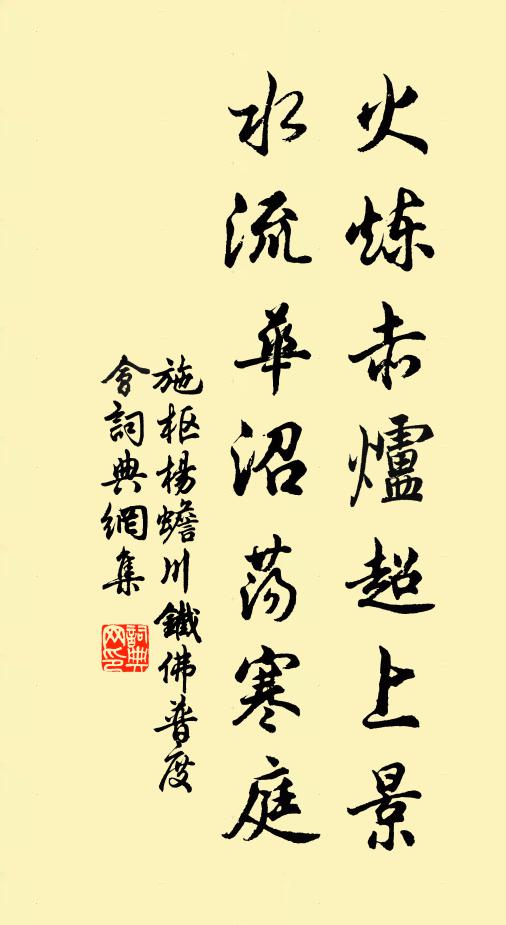 火炼赤爐超上景
水流華沼荡寒庭
施枢楊蟾川鐵佛普度
會詞典網集
詞典網印